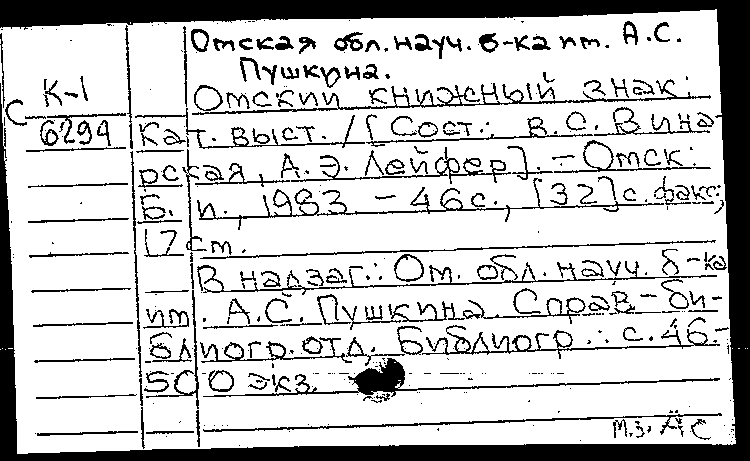 Омская обл. науч. б-ка им. А.С.
Пушкина.
К-1
Омский книжный знак:
С
6294
Кат. выст. / [Сост.: В.С. Вина-
рская, А.Э. Лейфер]. - Омск:
Б. и., 1983 - 46с., [32] с. факс;
17 см.
В надзаг.: Ом. обл. науч. б-ка
им. А.С. Пушкина. Справ.-би-
блиогр. отд. Библиогр.: с. 46.-
500 экз.
М.З. ÄС